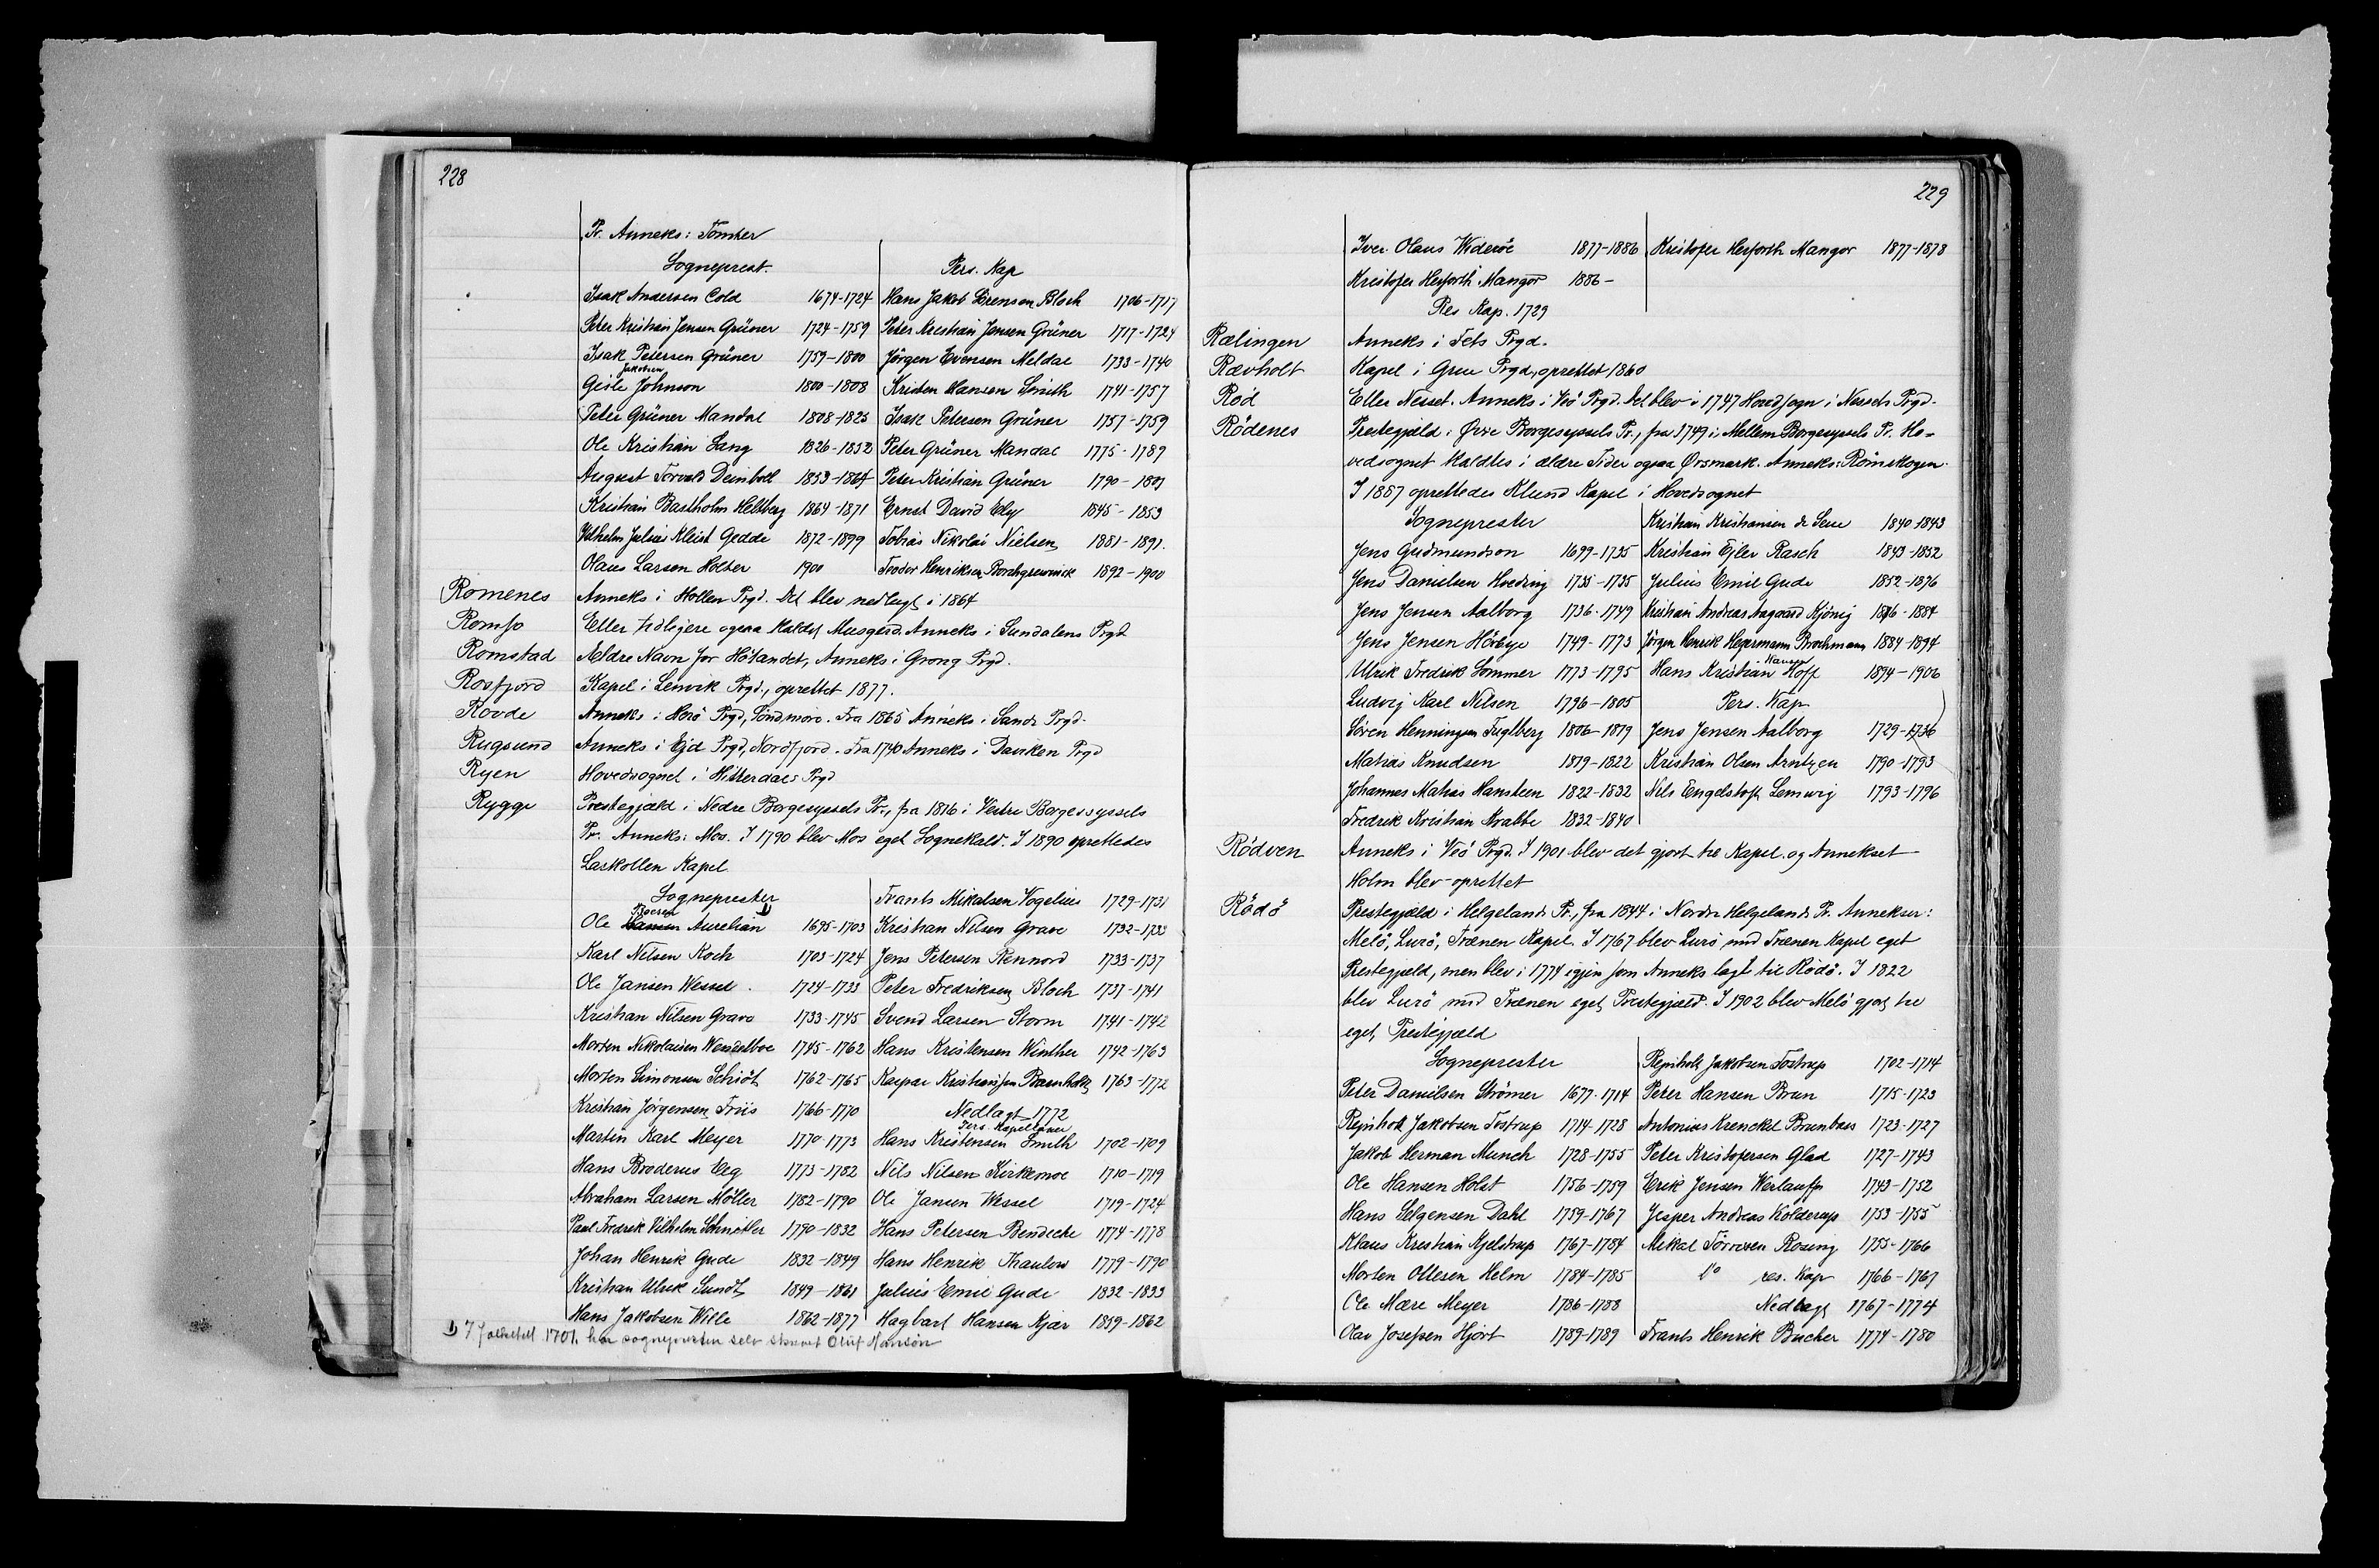 228
Pr. Anneks: Tomter
Sogneprest. Pers. Kap
Isak Andersen Cold 1674-1724 Hans Jakob Sörensen Bloch 1706-1717
Peter Kristian Jensen Grüner 1724-1759 Peter Kristian Jensen Grüner 1717-1724
Isak Petersen Grüner 1759-1800 Jörgen Evensen Meldal 1733-1740
Jakobsen
Gisle Johnson 1800-1808 Kristen Hansen Smith 1741-1757
Peter Grüner Mandal 1808-1825 Isak Petersen Grüner 1757-1759
Ole Kristian Lang 1826-1852 Peter Grüner Mandal 1775-1789
August Torvald Deinboll 1853-1864 Peter Kristian Grüner 1790-1801
Kristian Bastholm Heltberg 1864-1871 Ernst David Ely 1845-1853
Vilhelm Julius Kleist Gedde 1872-1899 Tobias Nikolai Nielsen 1881-1891.
Olaus Larsen Holter 1900 Frodor Henriksen Borchgrewinck 1892-1900
Romenes Anneks i Hollen Prgd. Det blev nedlagt i 1864
Romfo Eller tidligere ogsaa kaldet Musgerd. Anneks i Sundalens Prgd
Romstad Ældre Navn for Höilandet, Anneks i Grong Prgd.
Rosfjord Kapel i Lenvik Prgd., oprettet 1877.
Rovde Anneks i Herö Prgd, Söndmöre. Fra 1865 Anneks i Sande Prgd.
Rugsund Anneks i Ejd Prgd, Nordfjord. Fra 1740 Anneks i Daviken Prgd
Ryen Hovedsognet i Hitterdals Prgd
Rygge Prestegjæld i Nedre Borgesyssels Pr., fra 1816 i Vestre Borgesyssels
Pr. Anneks: Mos. I 1790 blev Mos eget Sognekald. I 1890 oprettedes
Larkollen Kapel.
Sogneprester Frants Mikalsen Vogelius 1729-1731
Ole Hansen Aurelian 1) 1695-1703 Kristian Nilsen Grave 1732-1733
Karl Nilsen Koch 1703-1724 Jens Petersen Rennord 1733-1737
Ole Jansen Wessel 1724-1733 Peter Fredriksen Bloch 1737-1741
Kristian Nilsen Grave 1733-1745 Svend Larsen Storm 1741-1742
Morten Nikolaisen Wendelboe 1745-1762 Hans Kristensen Winther 1742-1763
Morten Simonsen Schiöt 1762-1765 Kaspar Kristiansen Barnholdt 1763-1772
Kristian Jörgensen Friis 1766-1770 Nedlagt 1772
Pers. Kapellaner
Martin Karl Meyer 1770-1773 Hans Kristensen Smith 1702-1709
Hans Broderus Eeg 1773-1782 Nils Nilsen Kirkemoe 1710-1719
Abraham Larsen Möller 1782-1790 Ole Jansen Wessel 1719-1724
Paul Fredrik Vilhelm Schnitler 1790-1832 Hans Petersen Bendeche 1774-1778
Johan Henrik Gude 1832-1849 Hans Henrik Thaulow 1779-1790
Kristian Ulrik Sundt 1849-1861 Julius Emil Gude 1832-1833
Hans Jakobsen Wille 1862-1877 Hagbart Hansen Kjær 1859-1862
1) I folketell 1701 har sognepresten selv skrevet Oluf Hansön
229
Iver Olaus Wideröe 1877-1886 Kristofer Herforth Mangor 1877-1878
Kristofer Herforth Mangor 1886-
Res Kap. 1729
Rælingen Anneks i Fets Prgd.
Rævholt Kapel i Grue Prgd., oprettet 1860
Röd Eller Nesset. Anneks i Veö Prgd. Det blev i 1747 Hovedsogn i Nessets Prgd.
Rödenes Prestegjæld i Övre Borgesyssels Pr., fra 1749 i Mellem Borgesyssels Pr. Ho-
vedsognet kaldtes i ældre Tider ogsaa Örsmark. Anneks: Römskogen.
I 1887 oprettedes Klund Kapel i Hovedsognet
Sogneprester Kristian Kristiansen de Seue 1840-1843
Jens Gudmundsen 1699-1735 Kristian Ejler Rasch 1843-1852
Jens Danielsen Hveding 1735-1735 Julius Emil Gude 1852-1876
Jens Jensen Aalborg 1736-1749 Kristian Andreas Aagaard Kjönig 1876-1884
Jens Jensen Hörbye 1749-1773 Jörgen Henrik Hegermann Brochmann 1884-1894
Ulrik Fredrik Sommer 1773-1795 Hans Kristian Hansen Hoff 1894-1906
Ludvig Karl Nilsen 1796-1805 Pers. Kap
Sören Henningsen Fuglberg 1806-1819 Jens Jensen Aalborg 1729-1736
Matias Knudsen 1819-1822 Kristian Olsen Arntzen 1790-1793
Johannes Matias Hansteen 1822-1832 Nils Engelstoft Lemwig 1793-1796
Fredrik Kristian Krabbe 1832-1840
Rödven Anneks i Veö Prgd. I 1901 blev det gjort til Kapel og Annekset
Holm blev oprettet
Rödö Prestegjæld i Helgelands Pr., fra 1844 i Nordre Helgelands Pr. Annekser:
Melö, Lurö, Trænen Kapel. I 1767 blev Lurö med Trænen Kapel eget
Prestegjæld, men blev i 1774 igjen som Anneks lagt til Rödö. I 1822
blev Lurö med Trænen eget Prestegjæld. I 1902 blev Melö gjort til
eget Prestegjæld
Sogneprester Rejnholt Jakobsen Tostrup 1702-1714
Peter Danielsen Strömer 1677-1714 Peter Hansen Brun 1715-1723
Rejnholt Jakobsen Tostrup 1714-1728 Antonius Krenckel Brunboes 1723-1727
Jakob Herman Munch 1728-1755 Peter Kristofersen Glad 1727-1743
Ole Hansen Holst 1756-1759 Erik Jensen Werlauff 1743-1752
Hans Helgensen Dahl 1759-1767 Jesper Andreas Kolderup 1753-1755
Klaus Kristian Kjelstrup 1767-1784 Mikal Törresen Rosing 1755-1766
Morten Ottesen Helm 1784-1785 do res. Kap 1766-1767
Ole Mære Meyer 1786-1788 Nedlagt 1767-1774
Olav Josefsen Hjort 1789-1789 Frants Henrik Bucher 1774-1780